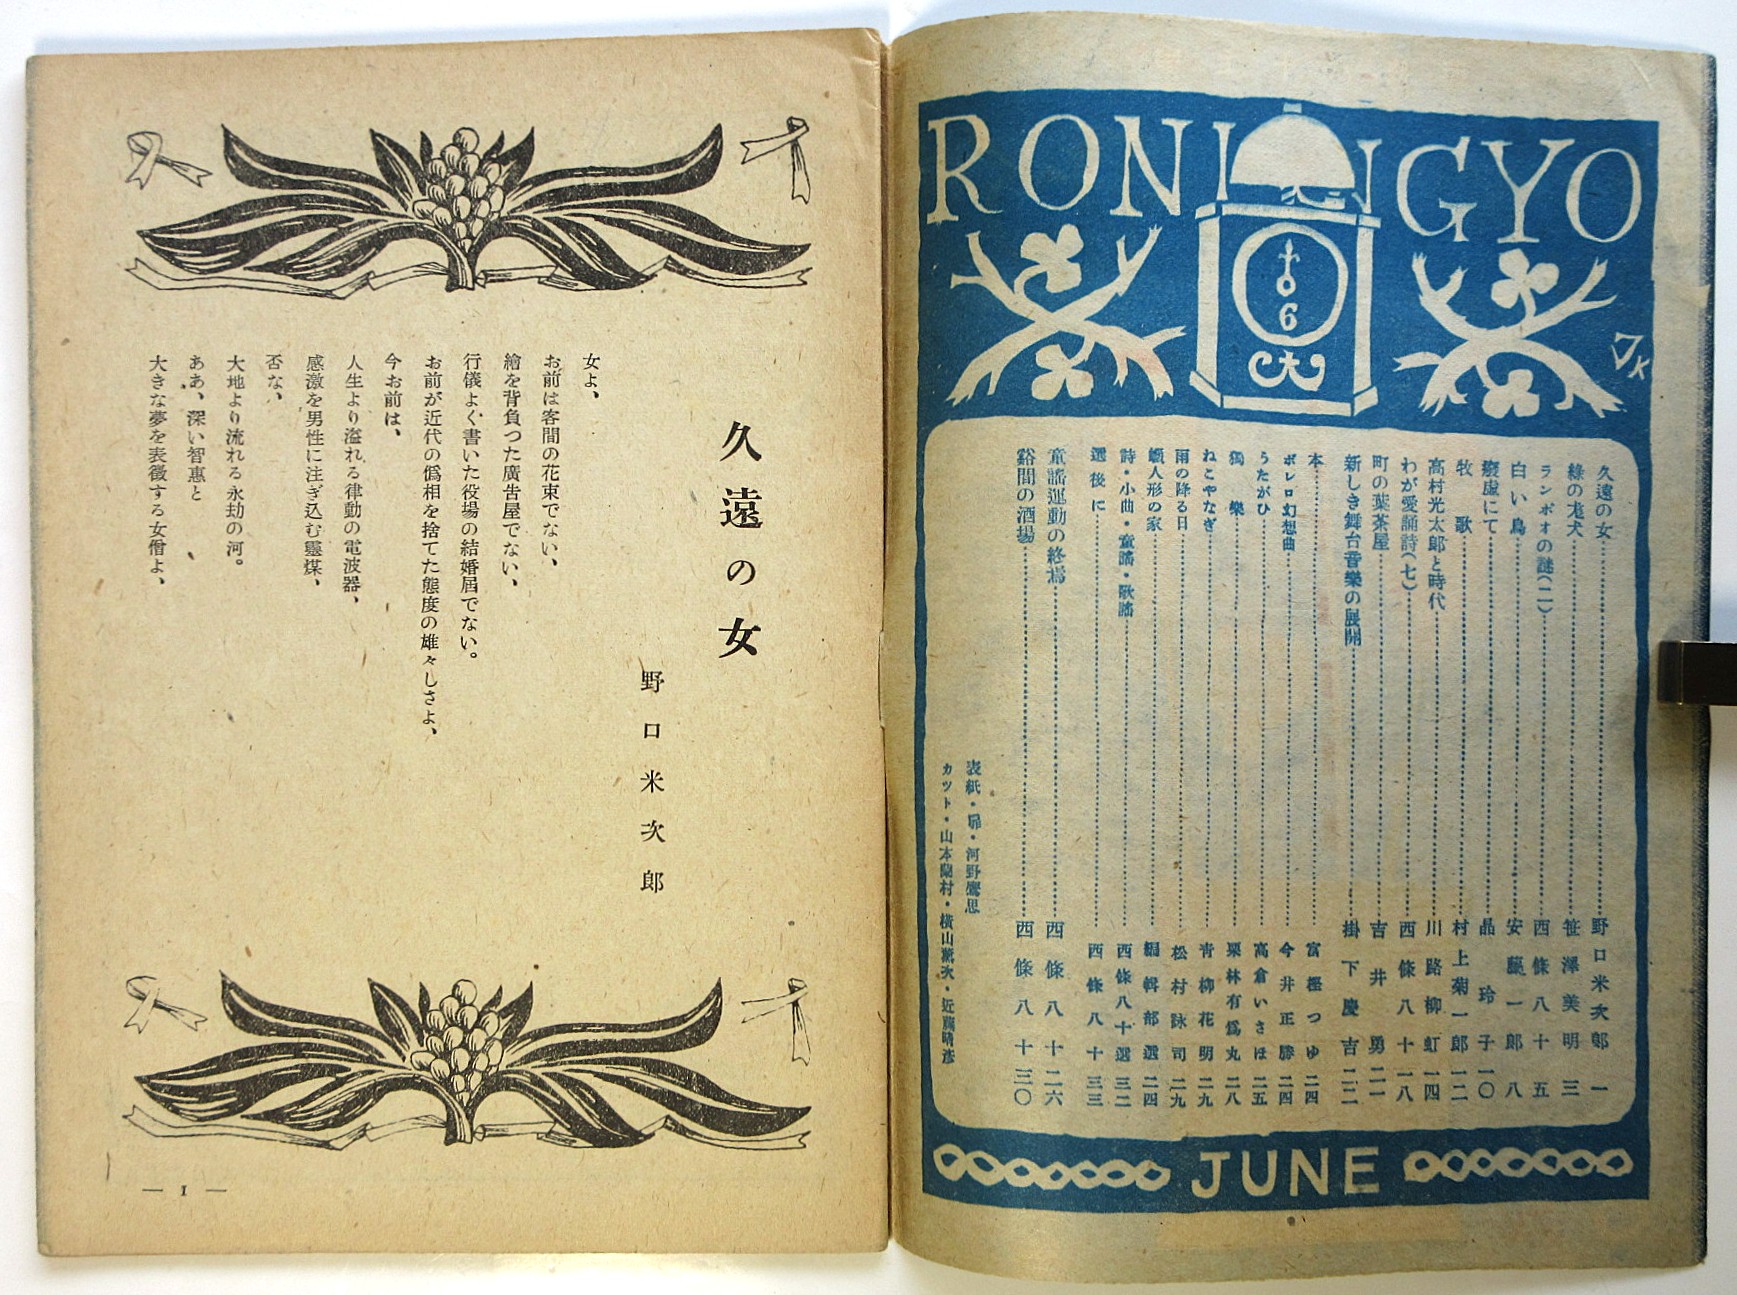 RONINGYO
6
JK
久遠の女……野口米次郎 一
綠の尨犬……笹澤美明 三
ランボオの謎(二)……西條八十 五
白い鳥……安藤一郎 八
廢虛にて……晶玲子 一〇
牧歌……村上菊一郎 一二
高村光太郎と時代……川路柳虹 一四
わが愛誦詩(七)……西條八十 一八
町の葉茶屋……吉井勇 二一
新しき舞台音樂の展開……掛下慶吉 二二
本……富樫つゆ 二四
ボレロ幻想曲……今井正勝 二四
うたがひ……高倉いさほ 二五
獨樂……栗林有爲丸 二八
ねこやなぎ……靑柳花明 二九
雨の降る日……松村詠司 二九
蠟人形の家……編輯部選 二四
詩・小曲・童謠・歌謠……西條八十選 三二
選後に……西條八十 三三
童謠運動の終焉……西條八十 二六
谿間の酒場……西條八十 三〇
表紙・扉・河野鷹思
カット・山本蘭村・橫山薰次・近藤晴彥
JUNE
久遠の女
野口米次郎
女よ、
お前は客間の花束でない、
繪を背負つた廣告屋でない、
行儀よく書いた役場の結婚屆でない。
お前が近代の僞相を捨てた態度の雄々しさよ、
今お前は、
人生より溢れる律動の電波器、
感激を男性に注ぎ込む靈媒、
否な、
大地より流れる永劫の河。
ああ、深い智惠と
大きな夢を表徵する女僧よ、
— 1 —